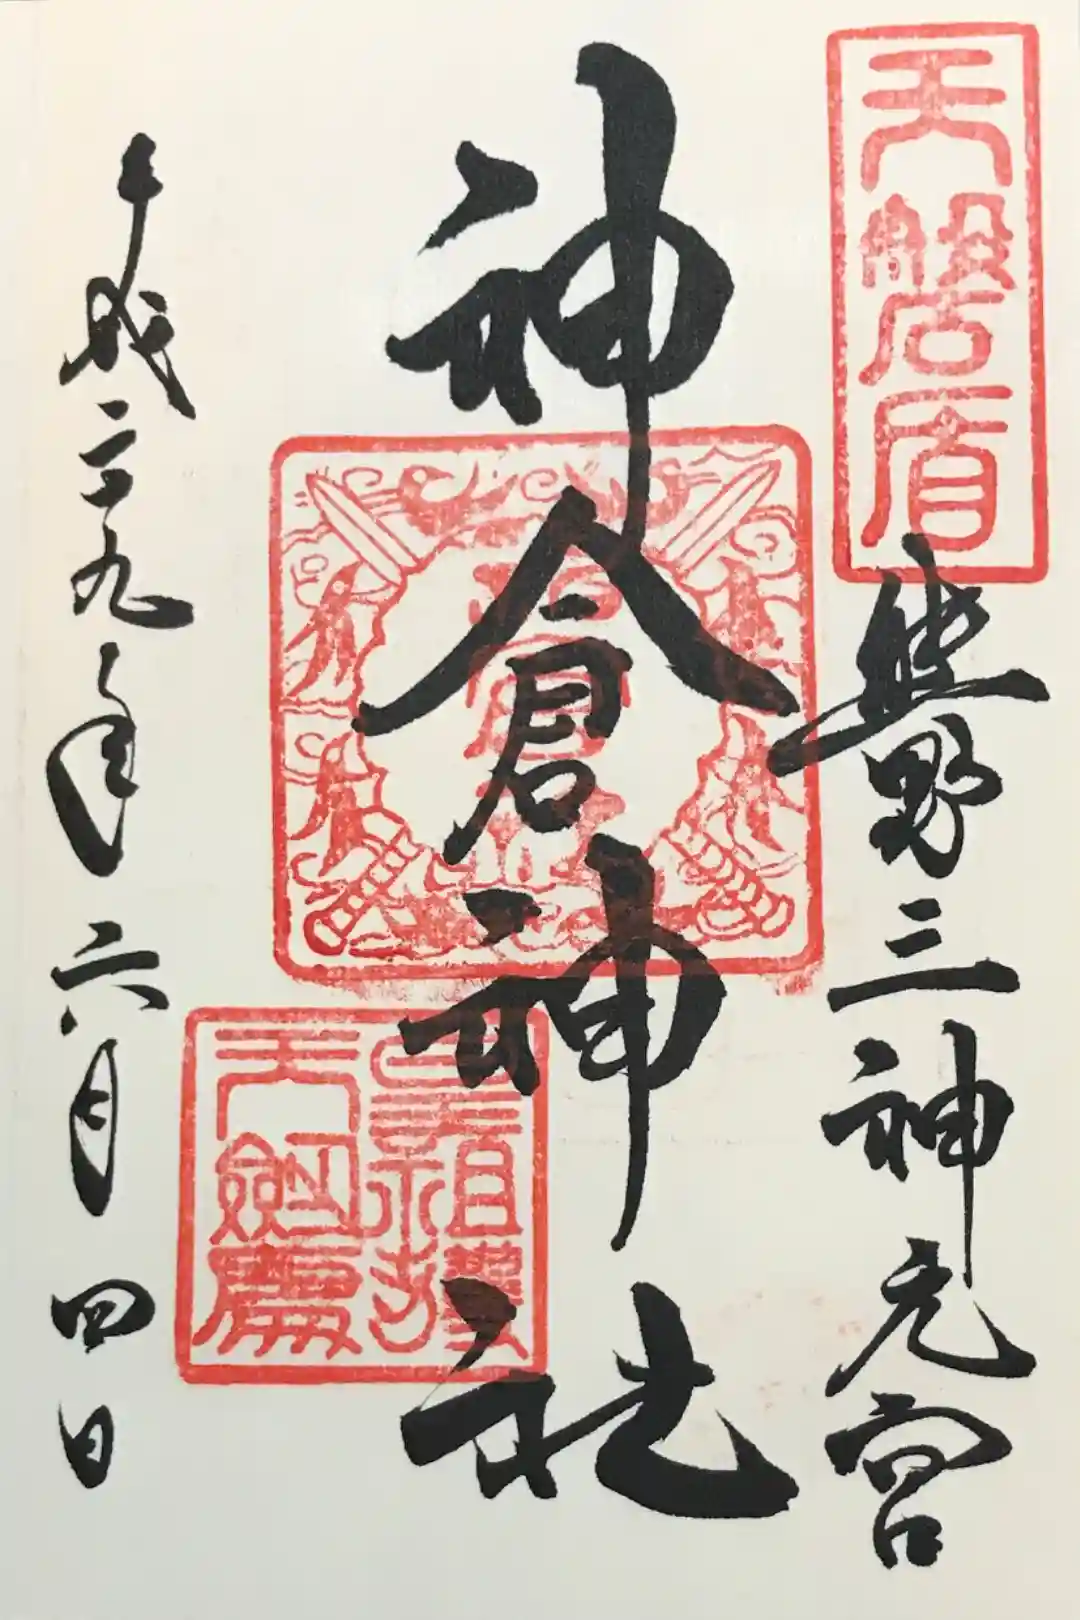 天磐盾
熊野三神元宮
神倉神社
皇祖獲
天劔處
平成二十九年六月四日